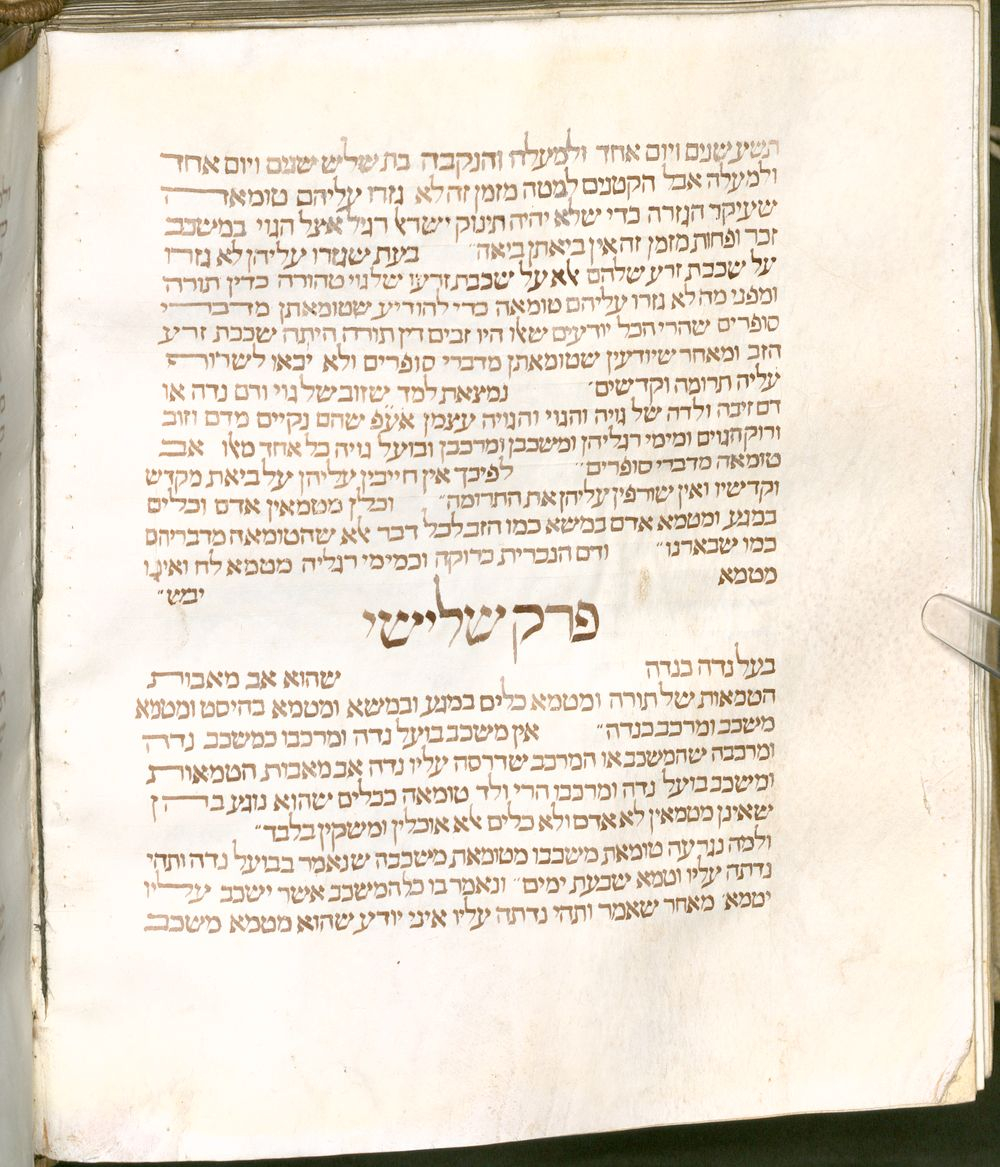 תשע שנים ויום אחד ולמעלה והנקבה בת שליש שנים ויום אחד
ולמעלה אבל הקטנים למטה מזמן זה לא גזרו עליהם טומאה
שעיקר הגזרה כדי שלא יהיה תינוק ישראל רגיל אצל הגוי במשכב
זכר ופחות מזמן זה אין ביאתן ביאה״ בעת שגזרו עליהן לא גזרו
על שכבת זרע שלהם אלא על שכבת זרעו של גוי טהורה כדין תורה
ומפני מה לא גזרו עליהם טומאה כדי להודיע שטומאתן מדברי
סופרים שהרי הכל יודעים שאלו היו זבים דין תורה היתה שכבת זרע
הזב ומאחר שיודעין שטומאתן מדברי סופרים ולא יבאו לשרוף
עליה תרומה וקדשים׳ נמצאת למד שזוב של גוי ודם נדה או
דם זיבה ולדה של גויה והגוי והגויה עצמן אע״פ שהם נקיים מדם וזוב
ורוק הגוים ומימי רגליהן ומשכבן ומרכבן ובועל גויה כל אחד מאלו אב
טומאה מדברי סופרים״ לפיכך אין חייבין עליהן על ביאת מקדש
וקדשיו ואין שורפין עליהן את התרומה״ וכלן מטמאין אדם וכלים
במגע ומטמא אדם במשא כמו הזב לכל דבר אלא שהטומאה מדבריהם
כמו שבארנו״ ודם הנכרית כרוקה וכמימי רגליה מטמא לח ואינו
מטמא
יבש״
פרק שלישי
בעל נדה כנדה
שהוא אב מאבות
הטמאות של תורה ומטמא כלים במגע ובמשא ומטמא בהיסט ומטמא
משכב ומרכב כנדה״ אין משכב בועל נדה ומרכבו כמשכב נדה
ומרכבה שהמשכב או המרכב שדרסה עליו נדה אב מאבות הטמאות
ומשכב בועל נדה ומרכבו הרי ולד טומאה ככלים שהוא נוגע בהן
שאינן מטמאין לא אדם ולא כלים אלא אוכלין ומשקין בלבד״
ולמה נגרעה טומאת משכבו מטומאת משכבה שנאמר בבועל נדה ותהי
נדתה עליו וטמא שבעת ימים״ ונאמר בו כל המשכב אשר ישכב עליו
יטמא׳ מאחר שאמר ותהי נדתה עליו איני יודע שהוא מטמא משכב